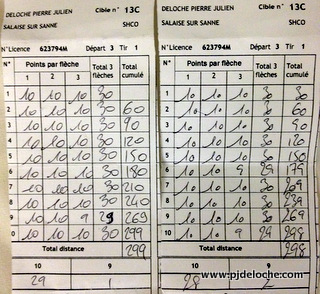 DELOCHE PIERRE JULIEN Cible n° 13C
SALAISE SUR SANNE SHCO
N°Licence 623794M Départ 3 Tir 1
N° Points par flèche Total 3 flèches Total cumulé
1 2 3
1 10 10 10 30
2 10 10 10 30 60
3 10 10 10 30 90
4 10 10 10 30 120
5 10 10 10 30 150
6 10 10 10 30 180
7 10 10 10 30 210
8 10 10 10 30 240
9 10 10 9 29 269
0 10 10 10 30 299
Total distance 299
10 9
29 1
DELOCHE PIERRE JULIEN Cible n° 13C
SALAISE SUR SANNE SHCO
N°Licence 623794M Départ 3 Tir 1
N° Points par flèche Total 3 flèches Total cumulé
1 2 3
1 10 10 10 30 30
2 10 10 10 30 60
3 10 10 10 30 90
4 10 10 10 30 120
5 10 10 10 30 150
6 10 10 9 29 179
7 10 10 10 30 209
8 10 10 10 30 239
9 10 10 10 30 269
10 10 10 9 29 298
Total distance 298
10 9
28
www.pjdeloche.com